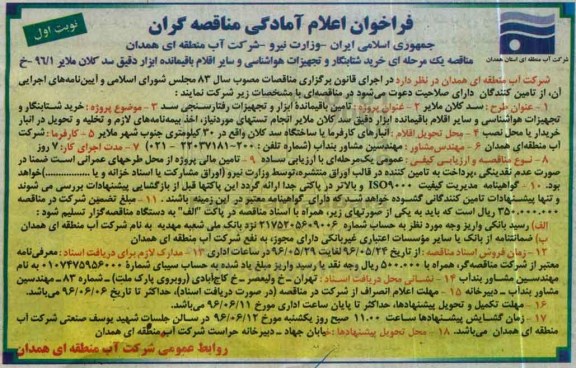 نوبت اول
فراخوان اعلام آمادگی مناقصه گران
جمهوری اسلامی ایران -وزارت نیرو -شرکت آب منطقه ای همدان
شرکت آب منطقه ای استان همدان
مناقصه یک مرحله ای خرید شتابنگار و تجهیزات هواشناسی و سایر اقلام باقیمانده ابزار دقیق سد کلان ملایر ۹۶/۱ -خ
شرکت آب منطقه ای همدان در نظر دارد در اجرای قانون برگزاری مناقصات مصوب سال ۸۳ مجلس شورای اسلامی و آیین‌نامه‌های اجرایی
آن، از تامین کنندگان دارای صلاحیت دعوت می‌شود در مناقصه‌ای با مشخصات زیر شرکت نمایند :
۱ - عنوان طرح : سد کلان ملایر ۲ - عنوان پروژه: تامین باقیمانده ابزار و تجهیزات رفتارسنجی سد ۳ - موضوع پروژه : خرید شتابنگار و
تجهیزات هواشناسی و سایر اقلام باقیمانده ابزار دقیق سد کلان ملایر انجام تستهای موردنیاز، اخذ بیمه‌نامه‌های لازم و تخلیه و تحویل در انبار
خریدار یا محل نصب ۴ - محل تحویل اقلام : انبارهای کارفرما یا ساختگاه سد کلان واقع در ۳۰ کیلومتری جنوب شهر ملایر ۵ - کارفرما : شرکت
آب منطقه‌ای همدان ۶ - مهندس مشاور : مهندسین مشاور بنداب (شماره تلفن : ۲۰۰-۲۲۰۳۷۱۸۱ - ۰۲۱) ۷ - مدت اجرای کار: ۷ روز
۸ - نوع مناقصه و ارزیابی کیفی : عمومی یک‌مرحله‌ای با ارزیابی ساده ۹ - تامین مالی پروژه از محل طرحهای عمرانی است ضمنا در
صورت عدم نقدینگی، پرداخت به تامین کننده در قالب اوراق منتشره، توسط وزارت نیرو (اوراق مشارکت یا اسناد خزانه و یا ............) خواهد
بود. ۱۰ - گواهینامه مدیریت کیفیت ISO۹۰۰۰ و بالاتر در پاکتی جدا ارائه گردد این پاکتها قبل از بازگشایی پیشنهادات بررسی می شوند
و تنها پیشنهادات تامین کنندگانی گشوده خواهد شد که دارای گواهینامه معتبر در این زمینه باشند. ۱۱ - مبلغ تضمین شرکت در مناقصه
۳۵۰.۰۰۰.۰۰۰ ریال است که باید به یکی از صورتهای زیر، همراه با اسناد مناقصه در پاکت "الف" به دستگاه مناقصه‌گزار تسلیم شود :
الف) رسید بانکی واریز وجه مورد نظر به حساب شماره ۲۱۷۵۲۰۵۶۰۹۰۰۶ نزد بانک ملی شعبه مهدیه به نام شرکت آب منطقه ای همدان
ب) ضمانتنامه از بانک یا سایر مؤسسات اعتباری غیربانکی دارای مجوز، به نفع شرکت آب منطقه ای همدان
۱۲ - زمان فروش اسناد مناقصه : از تاریخ ۹۶/۰۵/۲۴ لغایت ۹۶/۰۵/۲۹ در ساعات اداری ۱۳ - مدارک لازم برای دریافت اسناد : معرفی‌نامه
معتبر از شرکت مناقصه‌گر، همراه با ۵۰۰.۰۰۰ ریال وجه نقد یا رسید واریز مبلغ یاد شده به حساب سیبای شماره ۰۱۰۷۴۷۵۹۵۶۰۰۰ به نام
مهندسین مشاور بنداب ۱۴ - نشانی محل دریافت اسناد : تهران – خ ولیعصر – خ کاج‌آبادی (روبروی پارک ملت) – شماره ۸۳ – مهندسین
مشاور بنداب – دبیرخانه ۱۵ - مهلت اعلام انصراف از شرکت در مناقصه (در صورت دریافت اسناد)، حداکثر تا تاریخ ۹۶/۰۶/۰۶ می‌باشد.
۱۶ - مهلت تکمیل و تحویل پیشنهادها، حداکثر تا پایان ساعت اداری مورخ ۹۶/۰۶/۱۱ می‌باشد.
۱۷ - زمان گشایش پیشنهادها ساعت ۱۱.۰۰ صبح روز یکشنبه مورخ ۹۶/۰۶/۱۲ در سالن جلسات شهید یوسف صنعتی شرکت آب
منطقه ای همدان می‌باشد. ۱۸ - محل تحویل پیشنهادها : خیابان جهاد – دبیرخانه حراست شرکت آب منطقه‌ای همدان
روابط عمومی شرکت آب منطقه ای همدان